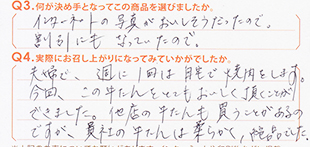 Q3.何が決め手となってこの商品を選びましたか。
インターネットの写真がおいしそうだったので。
割引にもなっていたので。
Q4.実際にお召し上がりになってみていかがでしたか。
夫婦で、週に1回は自宅で焼肉をします。
今回、この牛たんをとてもおいしく頂くことが
できました。他店の牛たんも買うことがあるの
ですが、貴社の牛たんは柔らかく、絶品でした。